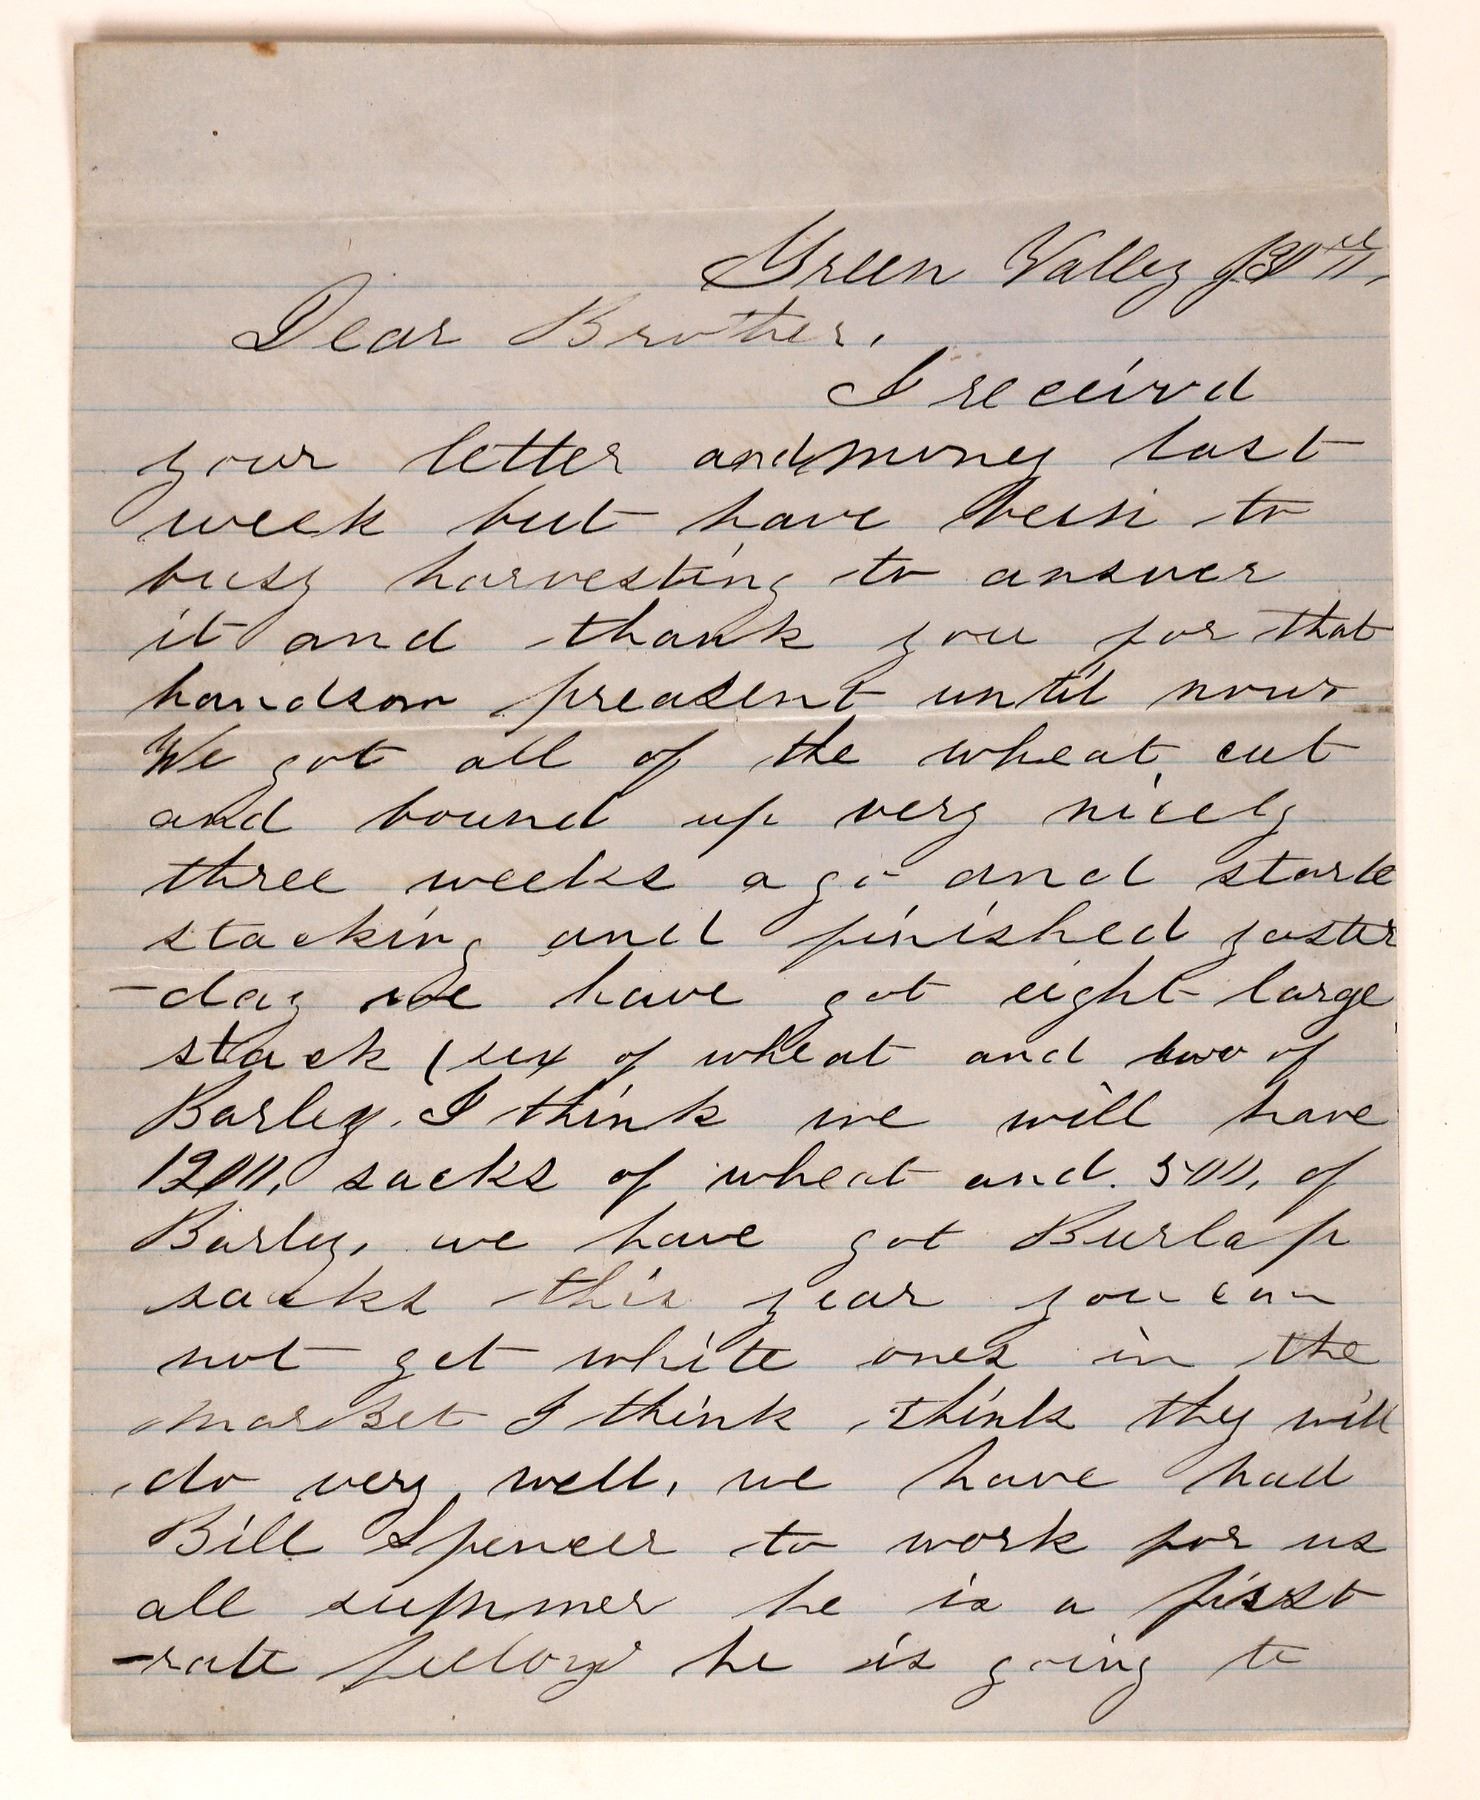 Green Valley
Dear Brother.
I receivd
your letter and money last
week but have been to
busy harvesting to answer
it and thank you for that
handsom preasent until now
We got all of the wheat cut
and bound up very nicely
three weeks ago and starte
stacking and finished yaster
-day we have got eight large
stack (six of wheat and two of
Barley. I think we will have
1200, sacks of wheat and. 500, of
Barley, we have got Burlap
sacks this year you can
not get white ones in the
market I think think they will
do very well, we have had
Bill Spencer to work for us
all summer he is a first
-rate fellow he is going to